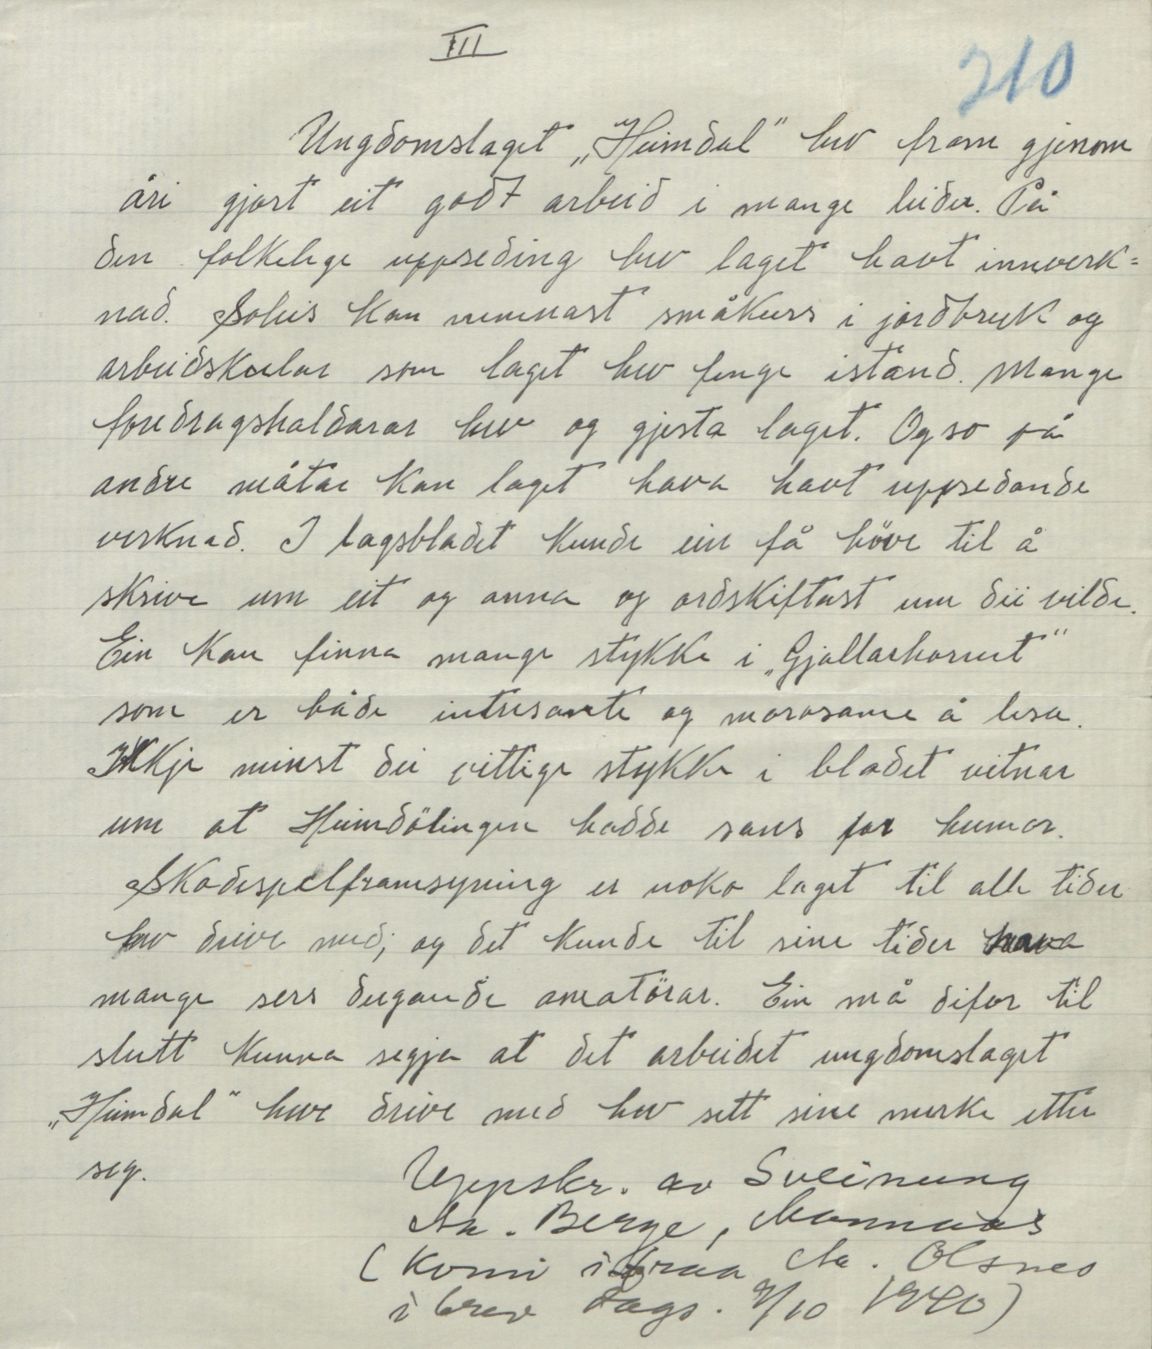 III
210
Ungdomslaget „Heimdal" hev fram gjenom
åri gjort eit godt arbeid i mange leider. På
den folkelege uppseding hev laget havt innverk=
nad. Soleis kan nemnast småkurs i jordbruk og
arbeidskular som laget hev fenge istand. Mange
foredragshaldarar hev og gjesta laget. Og so på
andre måtar kan laget hava havt uppsedande
verknad. I lagsbladet kunde ein få höve til å
skrive um eit og anna og ordskiftast um dei vilde.
Ein kan finna mange stykke i „Gjallarhornet"
som er både intresante og morosame å lesa.
Ikkje minst dei vittige stykke i bladet vitnar
um at Heimdölingen hadde sans for humor.
Skodespelframsyning er noko laget til alle tider
hev drive med; og det kunde til sine tider hava
mange sers dugande amatörar. Ein må difor til
slutt kunna segja at det arbeidet ungdomslaget
„Heimdal" heve drive med hev sett sine merke etter
seg.
Uppskr. av Sveinung
Aa. Berge,
(Komi ifraa Aa. Olsnes
i brev dags. 9/10 1940)